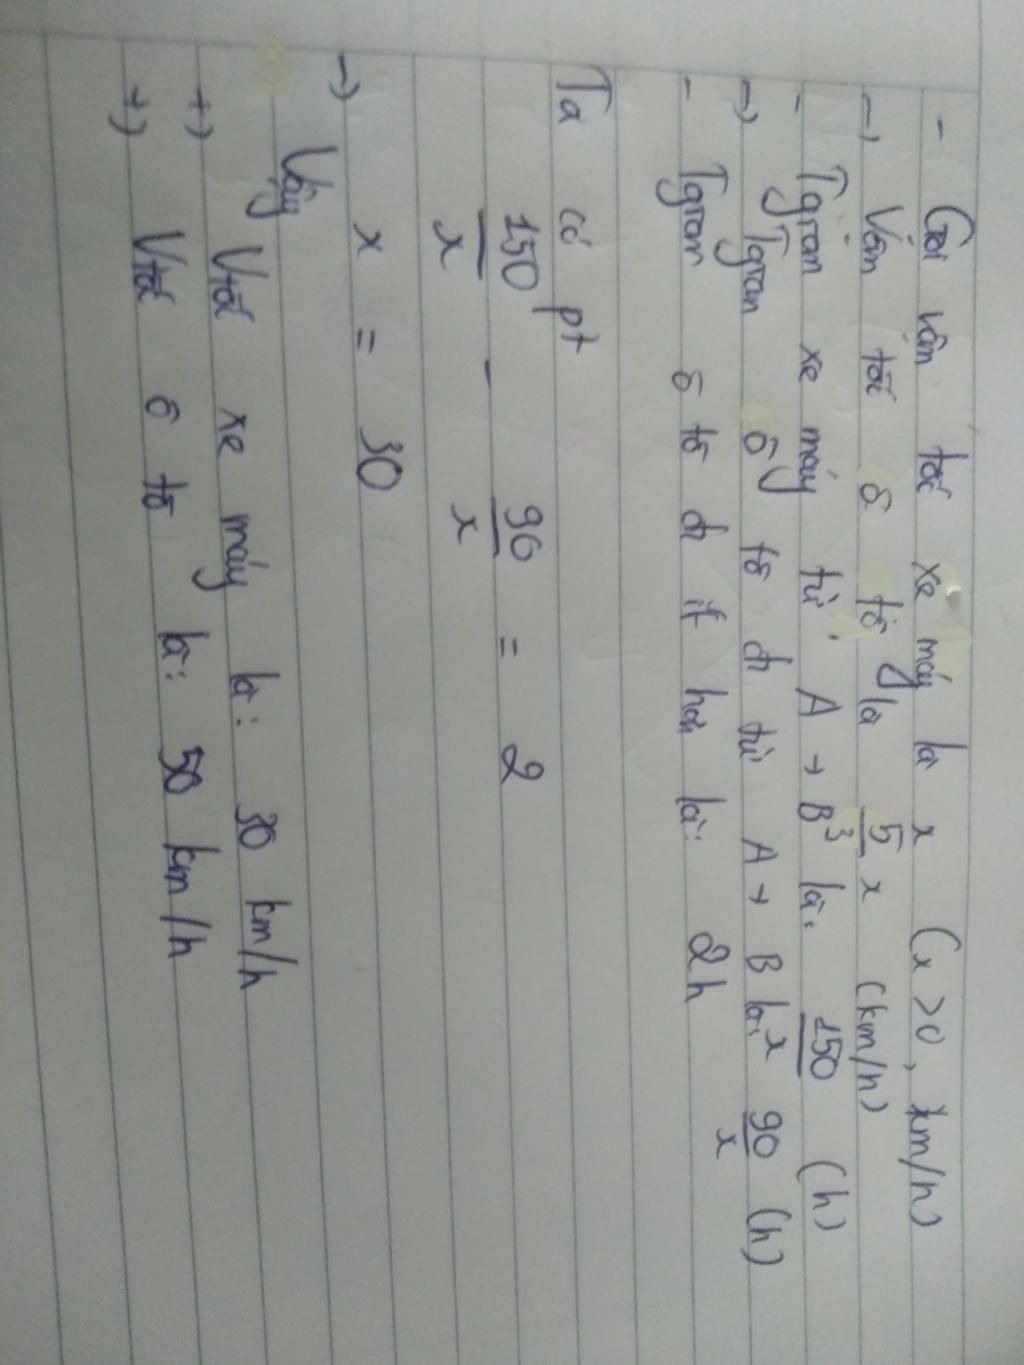 - Gọi vận tốc xe máy là x (x > 0, km/h)
→ Vận tốc ô tô là 5/3 x (km/h)
- Tgian xe máy từ A → B là: 150/x (h)
→ Tgian ô tô đi từ A → B là: 90/x (h)
- Tgian ô tô đi ít hơn là: 2h
Ta có pt
150/x - 90/x = 2
→ x = 30
Vậy
+) Vtốc xe máy là: 30 km/h
+) Vtốc ô tô là: 50 km/h